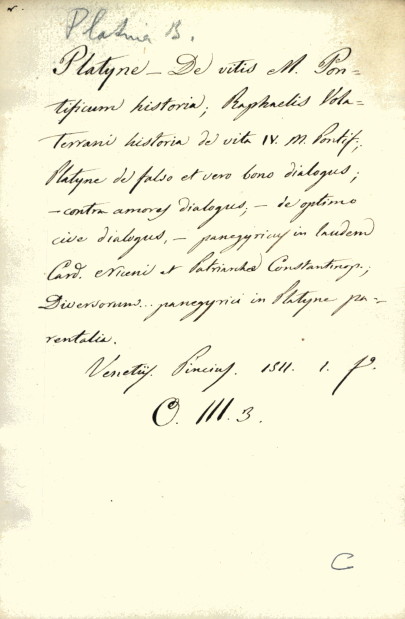 Platina B.
Platyne – De vitis M. Pon-
tificum historia; Raphaelis Vola-
terrani historia de vita IV. M. Pontif.;
Platyne de falso et vero bono dialogus;
– contra amores dialogus; – de optimo
cive dialogus, – panegyricus in laudem
Card. Niceni et Patriarchæ Constantinop.;
Diversorum... panegyrici in Platyne pa-
rentalia.
Venetijs. Pincius. 1511. 1. fº.
O. III. 3.
C